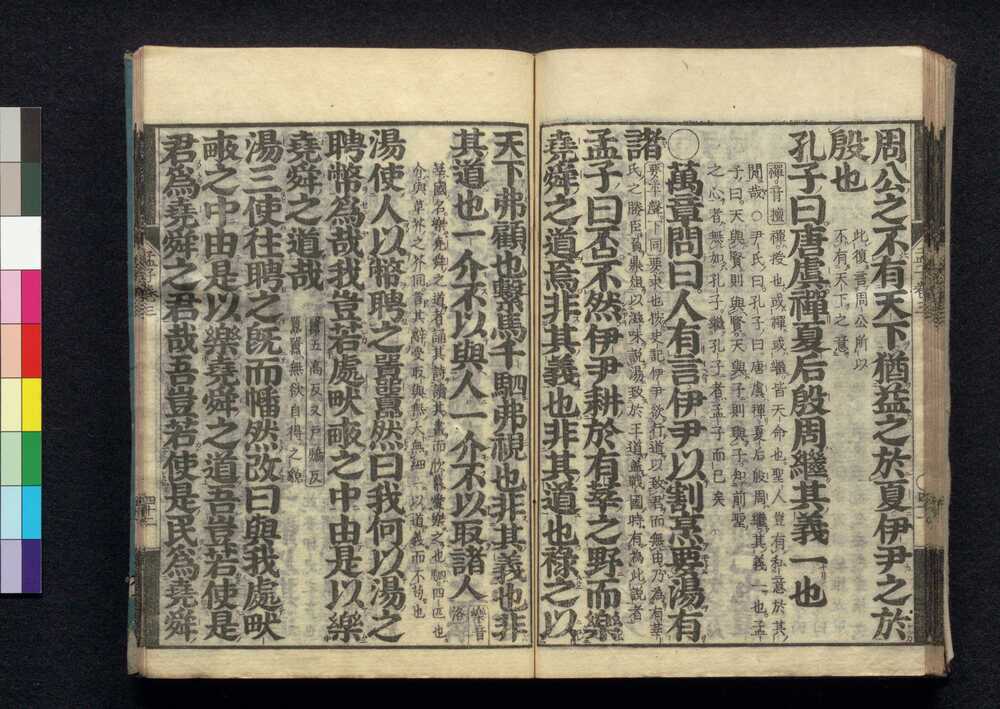 周公之不有天下猶益之於夏伊尹之於
殷也
此復言周公所以
不有天下之意
孔子曰唐虞禪夏后殷周繼其義一也
禪音擅
禪授也或禪或繼皆天命也聖人豈有私意於其
間哉○尹氏曰孔子曰唐虞禪夏后殷周繼其義一也孟
子曰天與賢則與賢天與子則與子知前聖
之心者無如孔子繼孔子者孟子而已矣
○萬章問曰人有言伊尹以割烹要湯有
諸
要平聲下同要求也按史記伊尹欲行道以致君而無由乃為有莘
氏之媵臣負鼎俎以滋味說湯致於王道蓋戰國時有為此說者
孟子曰否不然伊尹耕於有莘之野而樂
堯舜之道焉非其義也非其道也祿之以
天下弗顧也繫馬千駟弗視也非其義也非
其道也一介不以與人一介不以取諸人
樂音
洛
莘國名樂堯舜之道者誦其詩讀其書而欣慕愛樂之也駟四匹也
介與草芥之芥同言其辭受取與無大無細一以道義而不苟也
湯使人以幣聘之囂囂然曰我何以湯之
聘幣為哉我豈若處畎畝之中由是以樂
堯舜之道哉
囂五高反又戶驕反
囂囂無欲自得之貌
湯三使往聘之既而幡然改曰與我處畎
畝之中由是以樂堯舜之道吾豈若使是
君為堯舜之君哉吾豈若使是民為堯舜